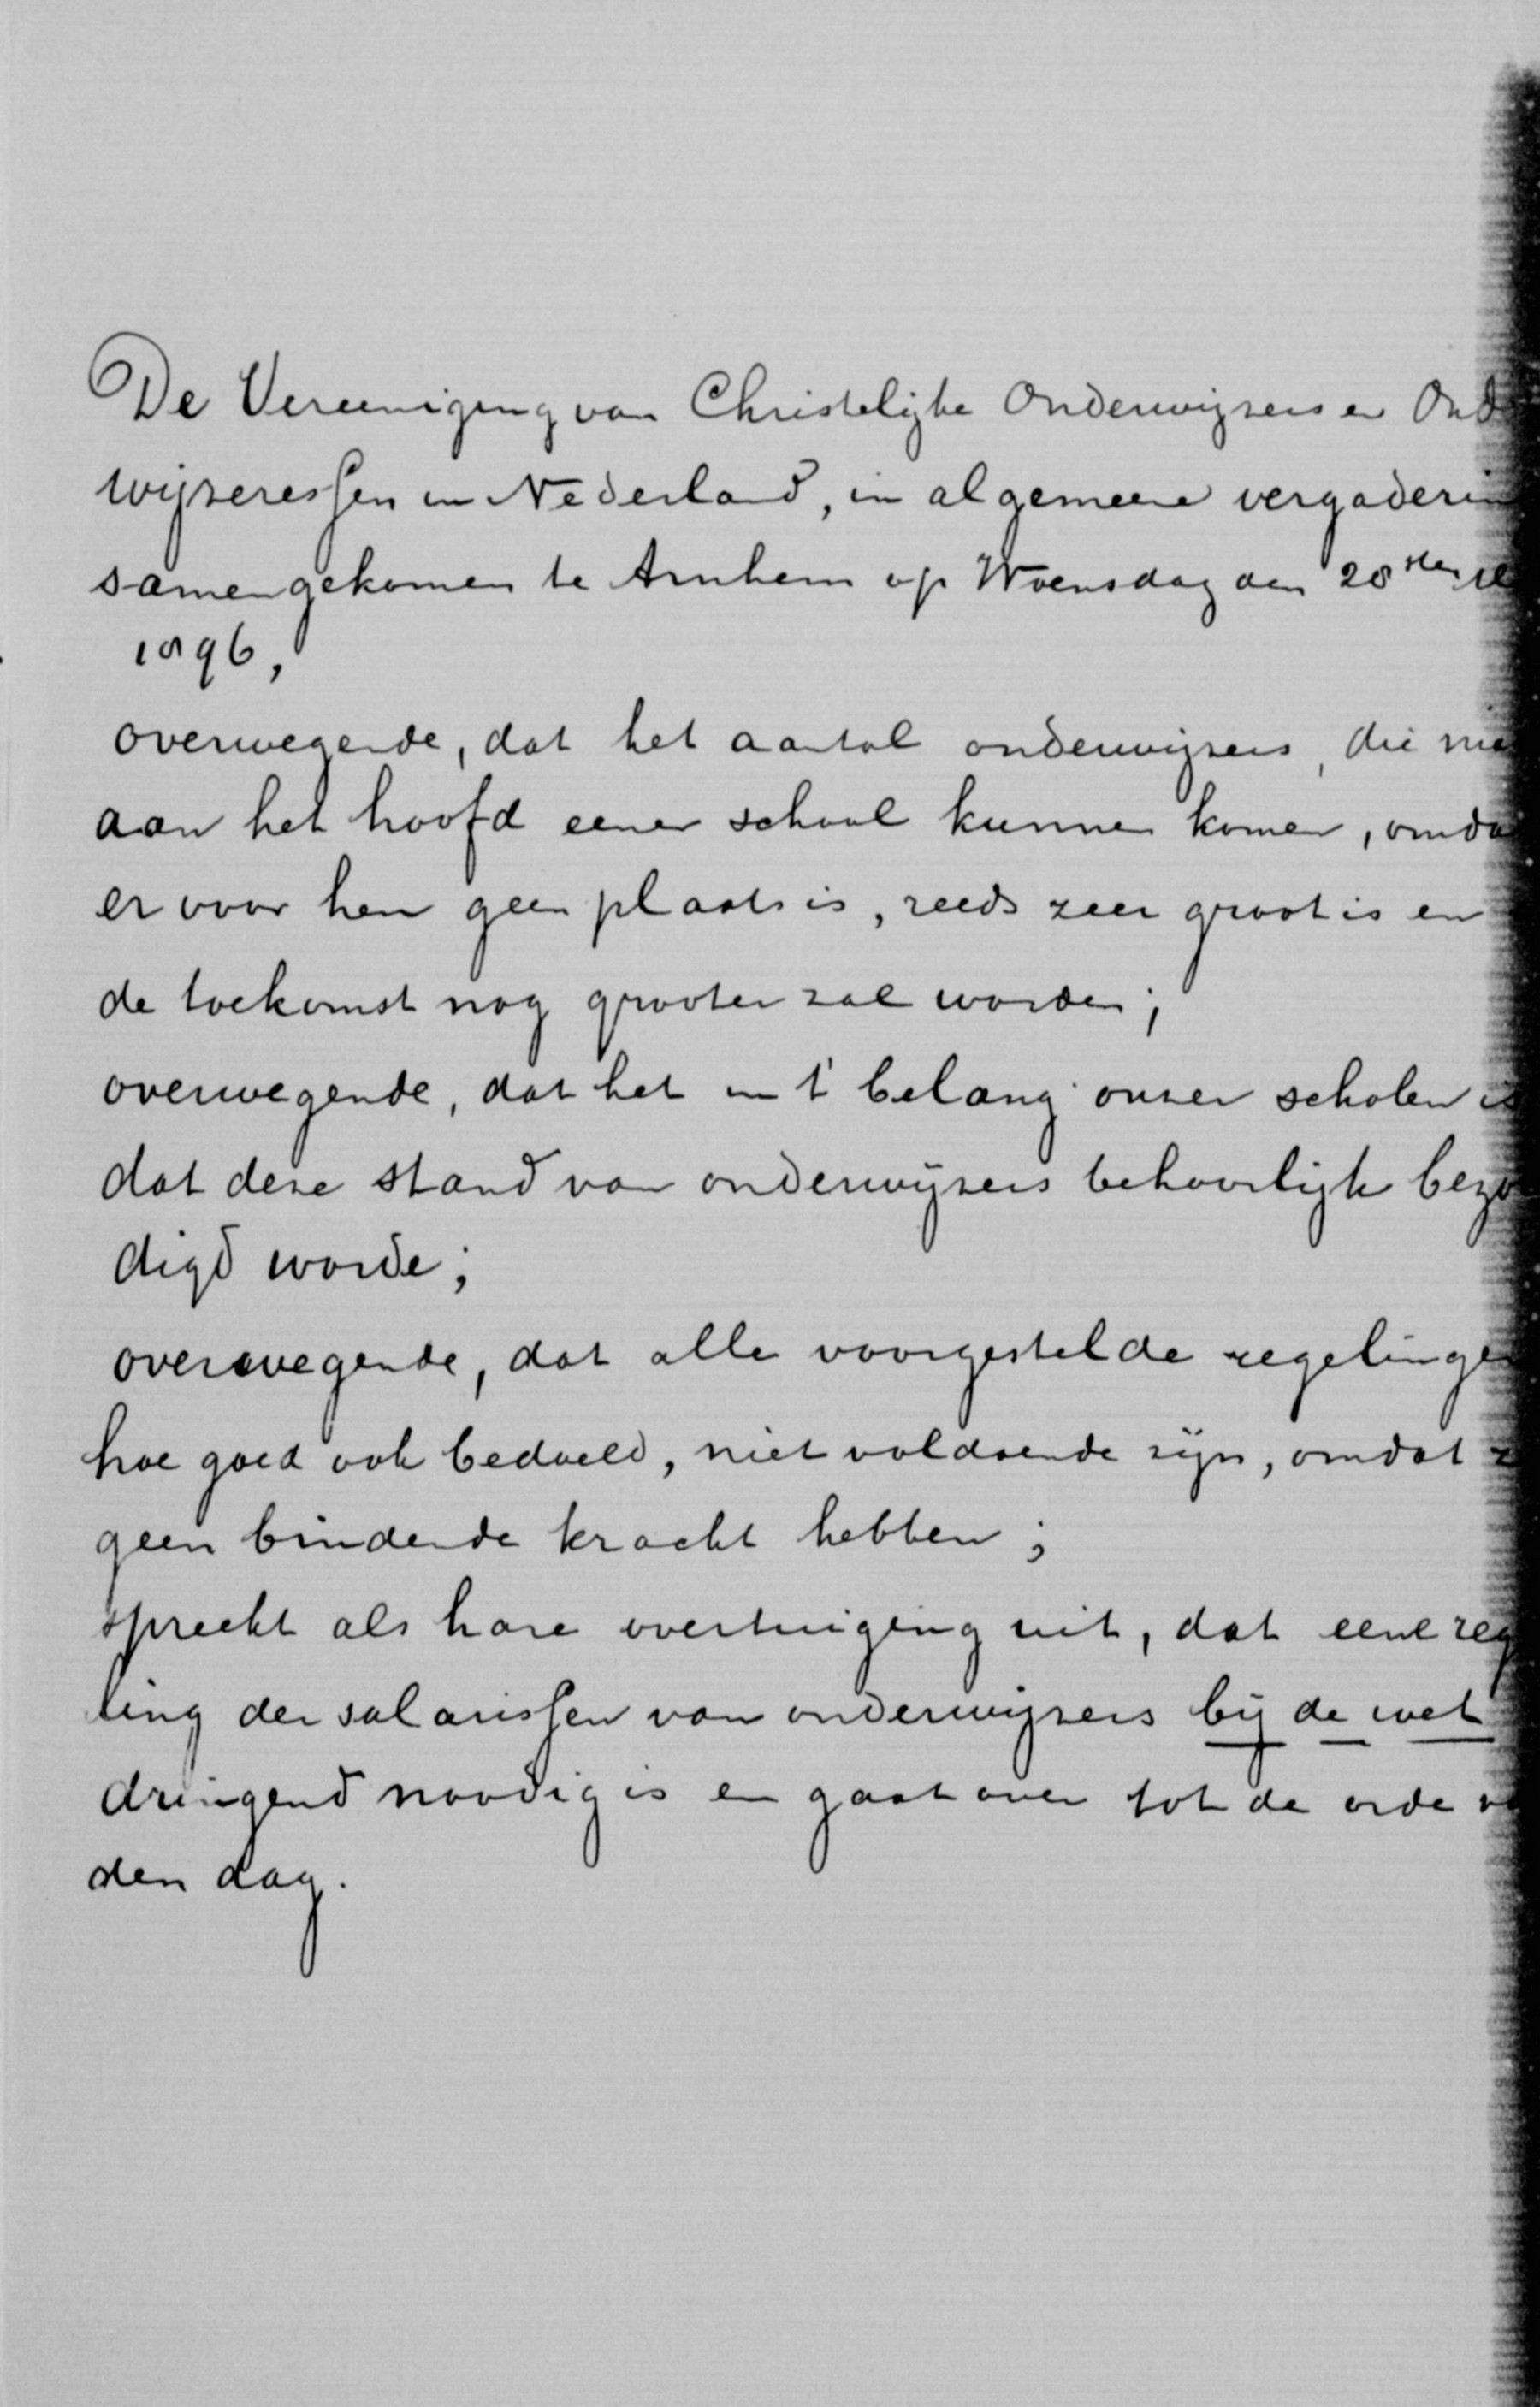 De Vereeniging van Christelijke Onderwijzers en Ond
wijzeressen in Nederland, in algemeene vergaderin
samengekomen te Arnhem op Woensdag den 28sten
1896,
overwegende, dat het aantal onderwijzers, die nie
aan het hoofd eener school kunnen komen, omda
er voor hen geen plaats is, reeds zeer groot is en
de toekomst nog grooter zal worden;
overwegende, dat het in 't belang onzer scholen is
dat deze stand van onderwijzers behoorlijk bezo
digd worde;
overwegende, dat alle voorgestelde regelingen
hoe goed ook bedoeld, niet voldoende zijn, omdat z
geen bindende kracht hebben;
spreekt als hare overtuiging uit, dat eene reg
ling der salarissen van onderwijzers bij de wet
dringend noodig is en gaat over tot de orde v
den dag.